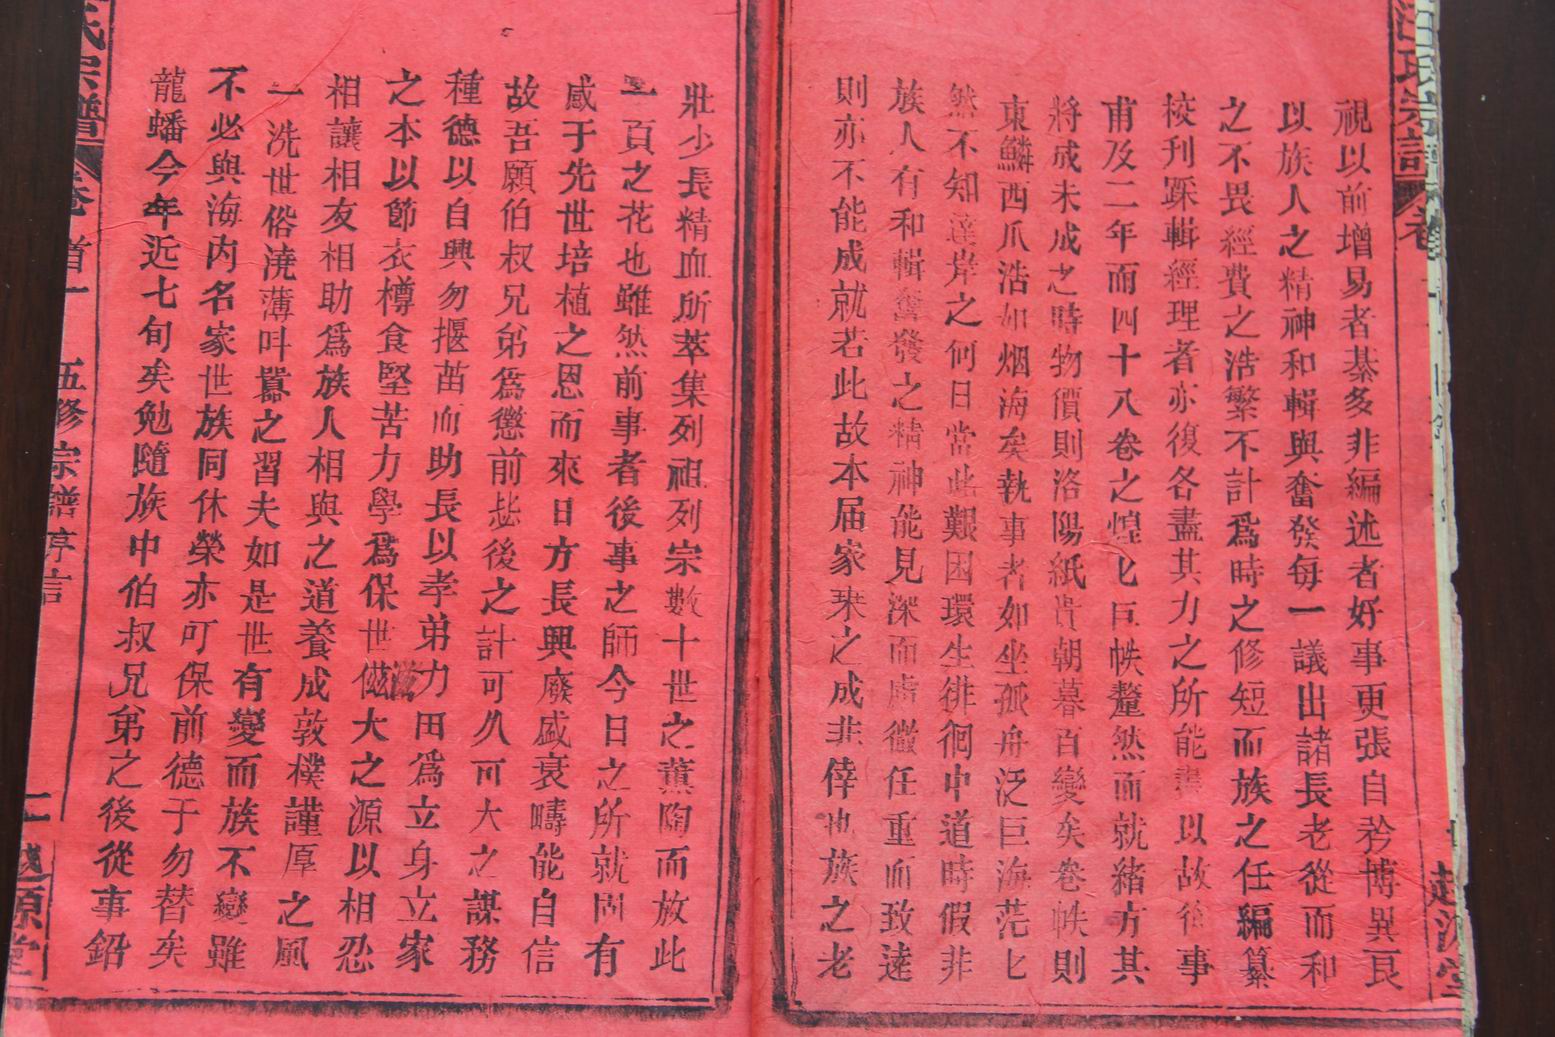 視以前增易者綦多非編述者好事更張自矜博異良
以族人之精神和輯與奮發每一議出諸長老從而和
之不畏經費之浩繁不計爲時之修短而族之任編纂
校刋踩輯經理者亦復各盡其力之所能盡以故從事
甫及二年而四十八卷之煌〻巨帙釐然而就緒方其
將成未成之時物價則洛陽紙貴朝暮百變矣卷帙則
東鱗西爪浩如烟海矣執事者如坐孤舟泛巨海茫〻
然不知達岸之何日當此艱困環生徘徊中道時假非
族人有和輯奮發之精神能見深而慮微任重而致遠
則亦不能成就若此故本届家珠之成非倖也族之老
壯少長精血所萃集列祖列宗數十世之薰陶而放此
一頁之花也雖然前事者後事之師今日之所就固有
感于先世培植之恩而來日方長興廢盛衰疇能自信
故吾願伯叔兄弟爲懲前毖後之計可久可大之謀務
種德以自興勿揠苗而助長以孝弟力田爲立身立家
之本以節衣樽食堅苦力學爲保世滋大之源以相忍
相讓相友相助爲族人相與之道養成敦樸謹厚之風
一洗世俗澆薄叫囂之習夫如是世有變而族不變雖
不必與海内名家世族同休榮亦可保前德于勿替矣
龍蟠今年近七旬矣勉隨族中伯叔兄弟之後從事鉛
氏宗譜
卷首一
五修宗譜序言
越源堂